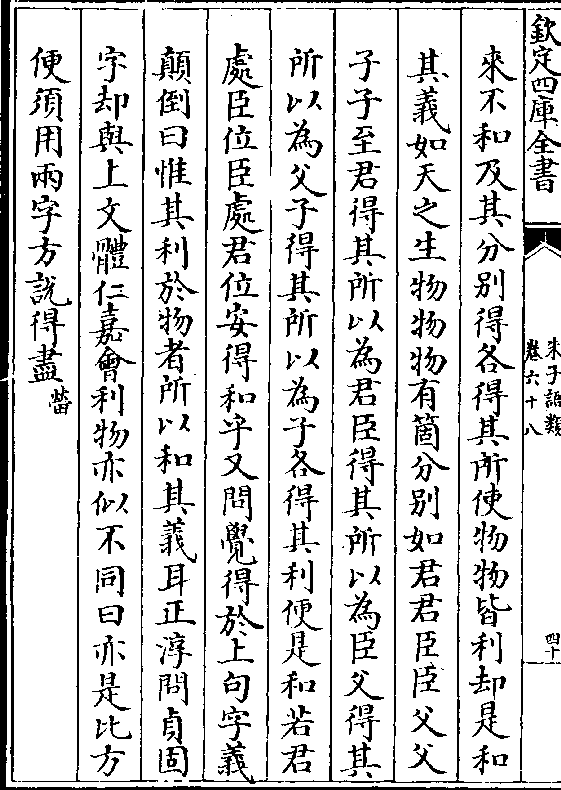 欽定四庫全書
朱子語類
卷六十八
四十
來不和及其分別得各得其所使物物皆利却是和
其義如天之生物物物有箇分別如君君臣臣父父
子子至君得其所以為君臣得其所以為臣父得其
所以為父子得其所以為子各得其利便是和若君
處臣位臣處君位安得和乎又問覺得於上句字義
顛倒曰惟其利於物者所以和其義耳正淳問貞固
字却與上文體仁嘉會利物亦似不同曰亦是比方
便須用兩字方說得盡㽦